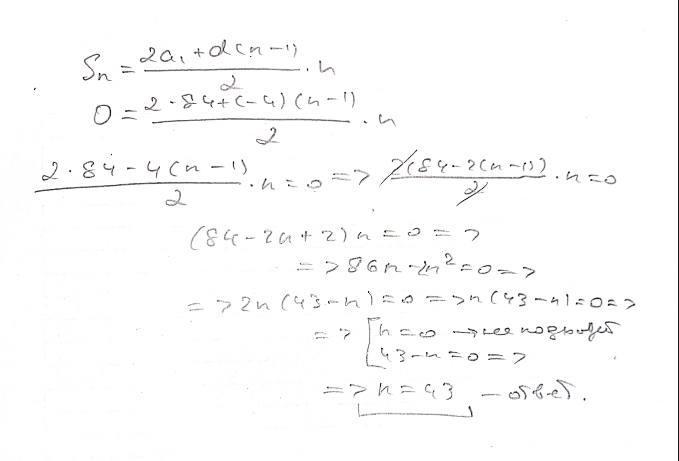 Sn = (2a₁ + d(n-1))/2 · n
0 = (2·84 + (-4)(n-1))/2 · n
(2·84 - 4(n-1))/2 · n = 0 => 2(84 - 2(n-1))/2 · n = 0
(84 - 2n + 2)n = 0 =>
=> 86n - 2n² = 0 =>
=> 2n(43-n) = 0 => n(43-n) = 0 =>
=> [n = 0 → не подходит
43 - n = 0 =>
=> n = 43 — ответ.